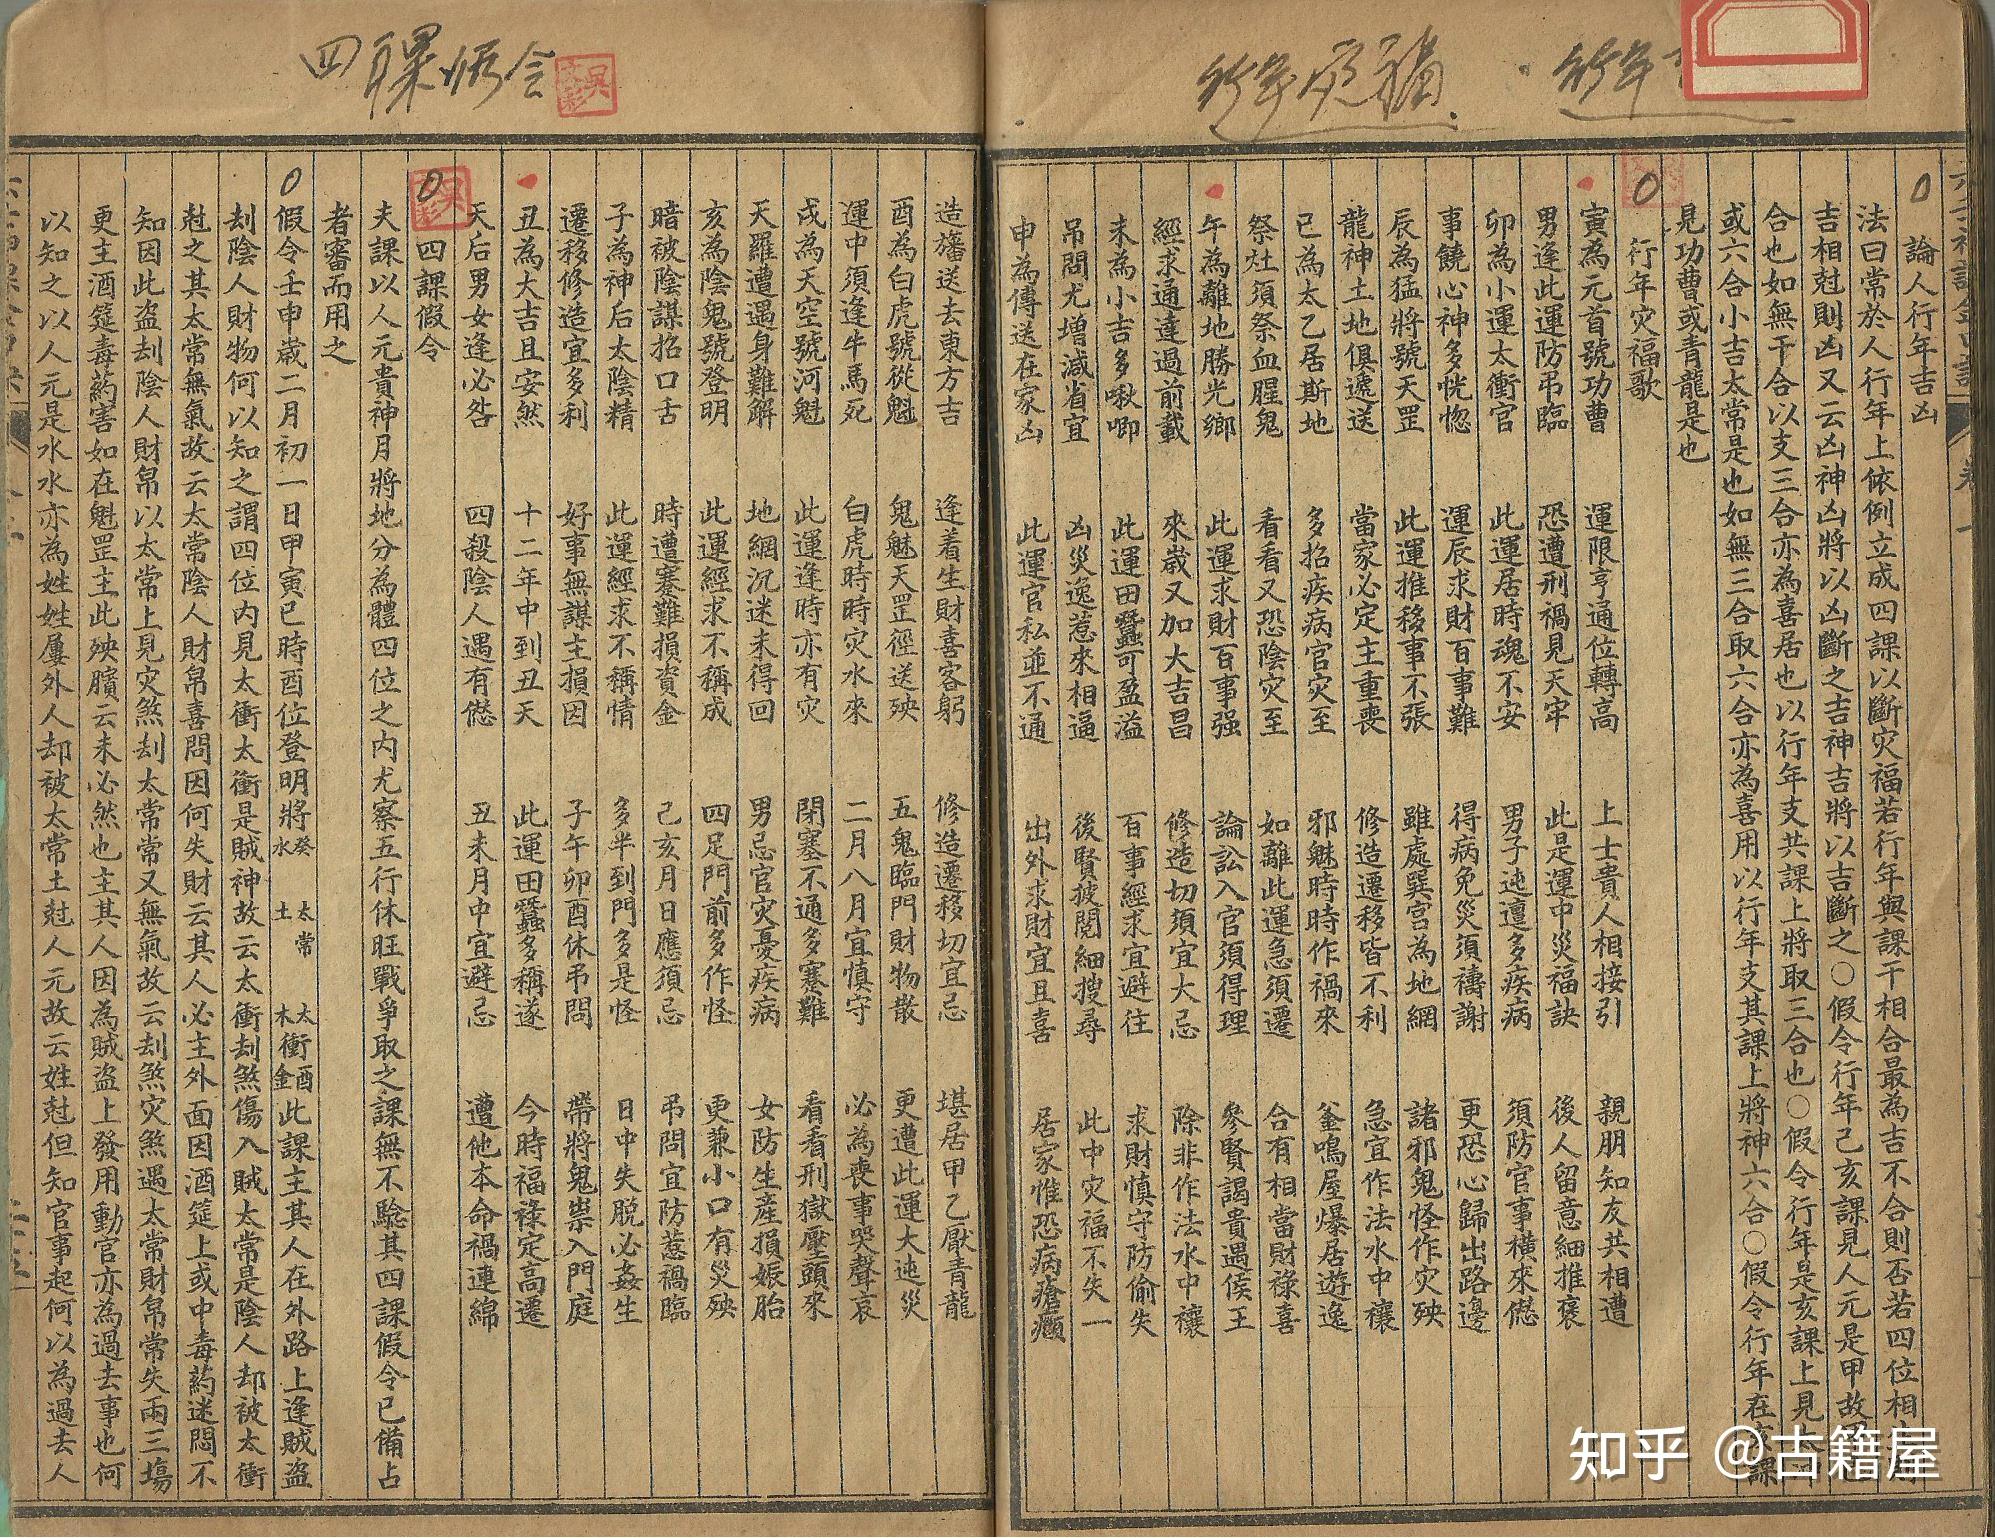 論人行年吉凶
法曰常於人行年上依例立成四課以斷灾福若行年與課干相合最為吉不合則否若四位相
吉相尅則凶又云凶神凶將以凶斷之吉神吉將以吉斷之○假令行年己亥課見人元是甲故
合也如無干合以支三合亦為喜居也以行年支共課上將取三合也○假令行年是亥課上見
或六合小吉太常是也如無三合取六合亦為喜用以行年支其課上將神六合○假令行年在亥課
見功曹或青龍是也
行年灾福歌
寅為元首號功曹 運限亨通位轉高 上士貴人相接引 親朋知友共相遭
男逢此運防吊臨 恐遭刑禍見天牢 此是運中災福訣 後人留意細推褒
卯為小運太衝官 此運居時魂不安 男子迍邅多疾病 須防官事横來愆
事饒心神多恍惚 運辰求財百事難 得病免災須禱謝 更恐心歸出路邊
辰為猛將號天罡 此運推移事不張 雖處巽宫為地網 諸邪鬼怪作灾殃
龍神土地俱遞送 當家必定主重喪 修造遷移皆不利 急宜作法水中禳
巳為太乙居斯地 多招疾病官灾至 邪魅時時作禍來 釜鳴屋爆居遊逸
祭灶須祭血腥鬼 看看又恐陰灾至 如離此運急須遷 合有相當財祿喜
午為離地勝光鄉 此運求財百事强 論訟入官須得理 參賢謁貴遇侯王
經求通達過前載 來歲又加大吉昌 修造切須宜大忌 除非作法水中禳
未為小吉多啾唧 此運田蠶可盈溢 百事經求宜避往 求財慎守防偷失
吊問尤增減省宜 凶災逸惹來相逼 後賢披閱細搜尋 此中灾福不失一
申為傳送在家凶 此運官私並不通 出外求財宜且喜 居家惟恐病瘡癩
四課悟会
造旛送去東方吉 逢着生財喜客躬 修造遷移切宜忌 堪居甲乙厭青龍
酉為白虎號從魁 鬼魅天罡徑送殃 五鬼臨門財物散 更遭此運大迍災
運中須逢牛馬死 白虎時時灾水來 二月八月宜慎守 必為喪事哭聲哀
戌為天空號河魁 此運逢時亦有灾 閉塞不通多蹇難 看看刑獄壓頭來
天羅遭遇身難解 地網沉迷未得回 男忌官灾憂疾病 女防生產損娠胎
亥為陰鬼號登明 此運經求不稱成 四足門前多作怪 更兼小口有災殃
暗被陰謀招口舌 時遭蹇難損資金 己亥月日應須忌 吊問宜防惹禍臨
子為神后太陰精 此運經求不稱情 多半到門多是怪 日中失脫必姦生
遷移修造宜多利 好事無謀主損因 子午卯酉休吊問 帶將鬼祟入門庭
丑為大吉且安然 十二年中到丑天 此運田蠶多稱遂 今時福祿定高遷
天后男女逢必咎 四殺陰人遇有愆 丑未月中宜避忌 遭他本命禍連綿
四課假令
夫課以人元貴神月將地分為體四位之内尤察五行休旺戰爭取之課無不騐其四課假令已備占
者審而用之
假令壬申歲二月初一日甲寅巳時酉位登明將癸水 太常土 太衝木 酉金此課主其人在外路上逢賊盗
刦陰人財物何以知之謂四位内見太衝太衝是賊神故云太衝刦煞傷入賊太常是陰人却被太衝
尅之其太常無氣故云太常陰人財帛喜問因何失財云其人必主外面因酒筵上或中毒葯迷悶不
知因此盗刦陰人財帛以太常上見灾煞刦太常常又無氣故云刦煞灾煞遇太常財帛常失兩三場
更主酒筵毒葯害如在魁罡主此殃臏云未必然也主其人因為賊盗上發用動官亦為過去事也何
以知之以人元是水水亦為姓姓屢外人却被太常土尅人元故云姓尅但知官事起何以為過去人
知乎 @古籍屋